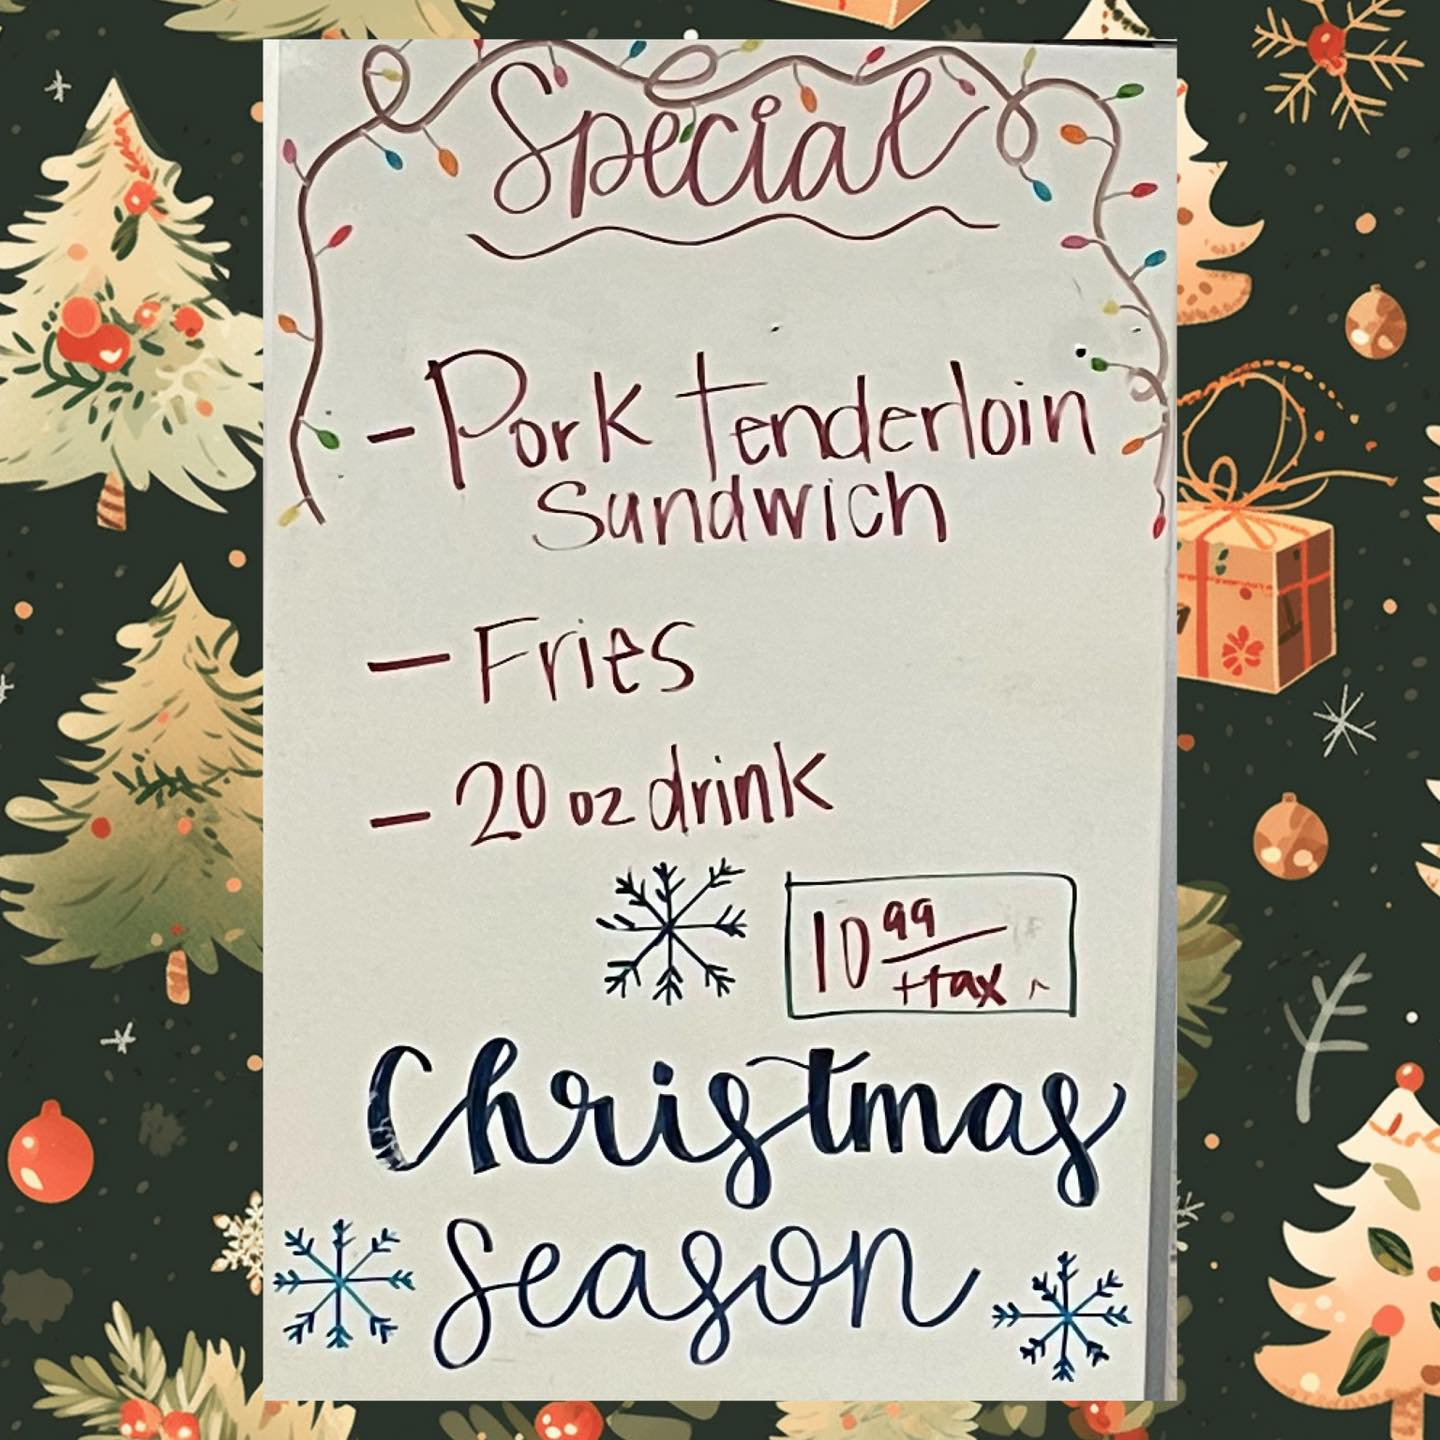 Special
- Pork Tenderloin
Sandwich
- Fries
- 20 oz drink
10 99
+tax
Christmas
Season